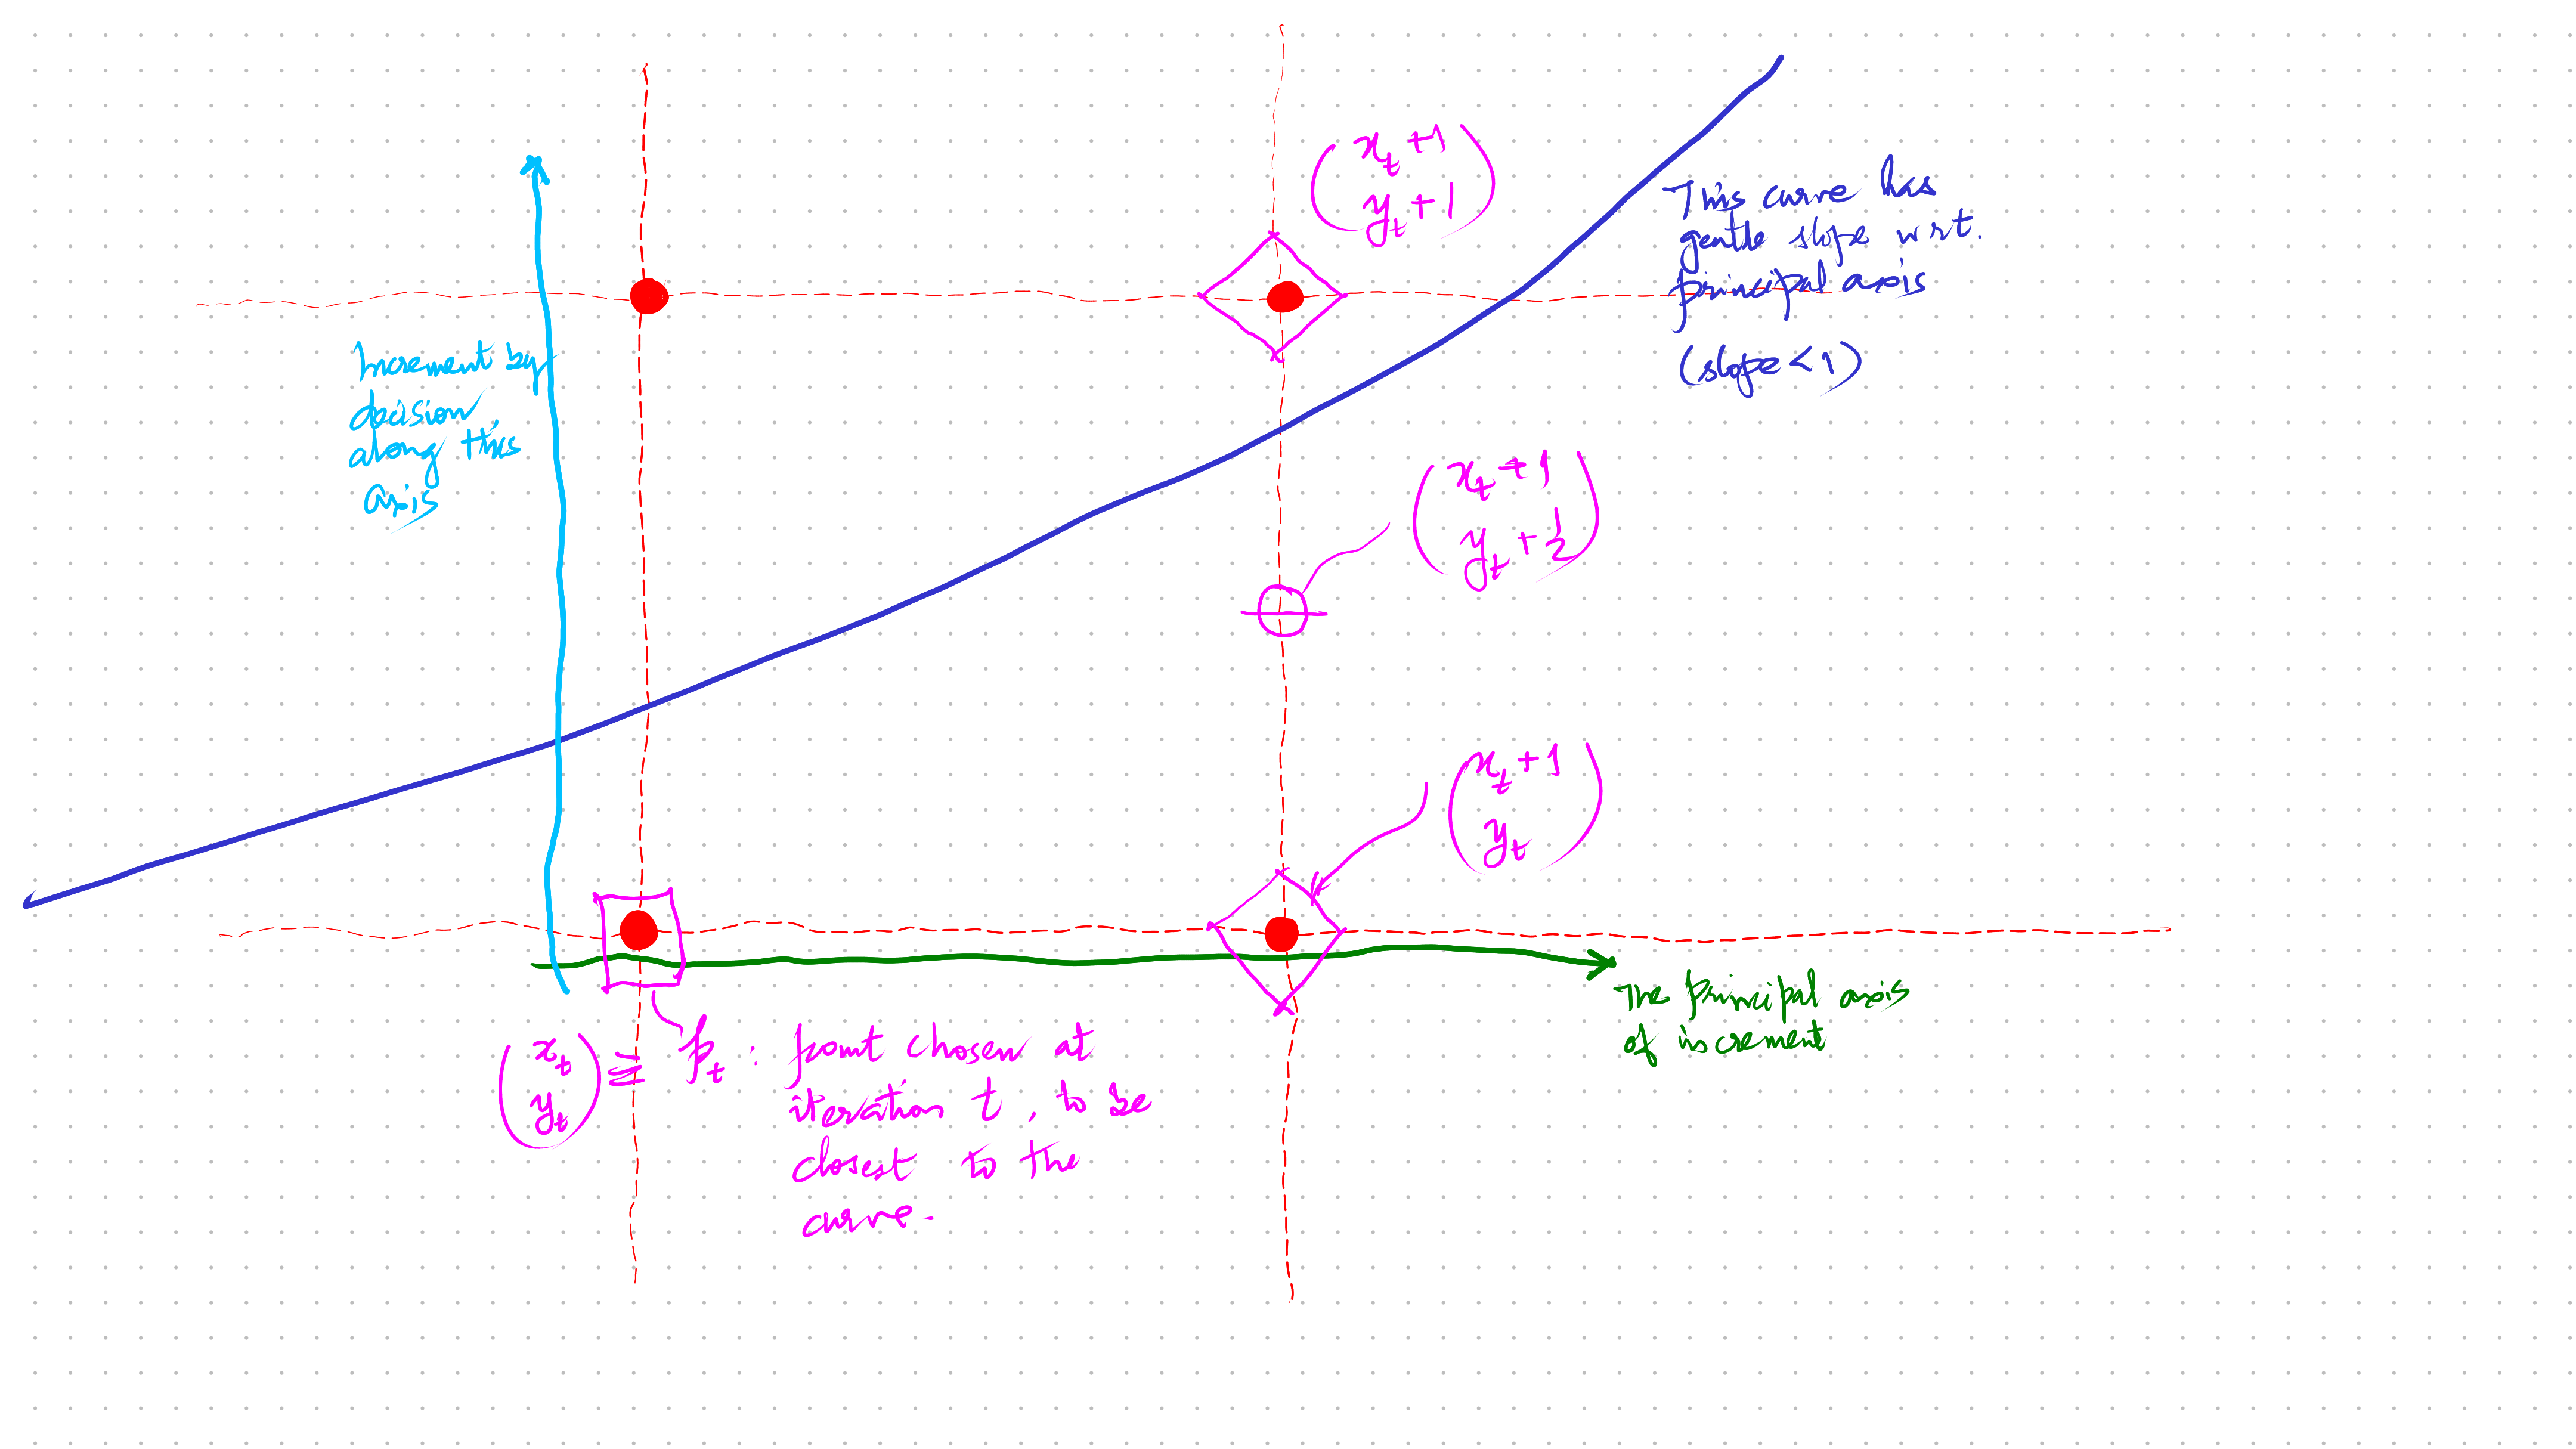 (x_t +1
y_t +1)
This curve has
gentle slope wrt.
principal axis
(slope < 1)
Increment by
decision
along this
axis
(x_t +1
y_t + 1/2)
(x_t +1
y_t)
The principal axis
of increment
(x_t
y_t) ≡ p_t : point chosen at
iteration t, to be
closest to the
curve.